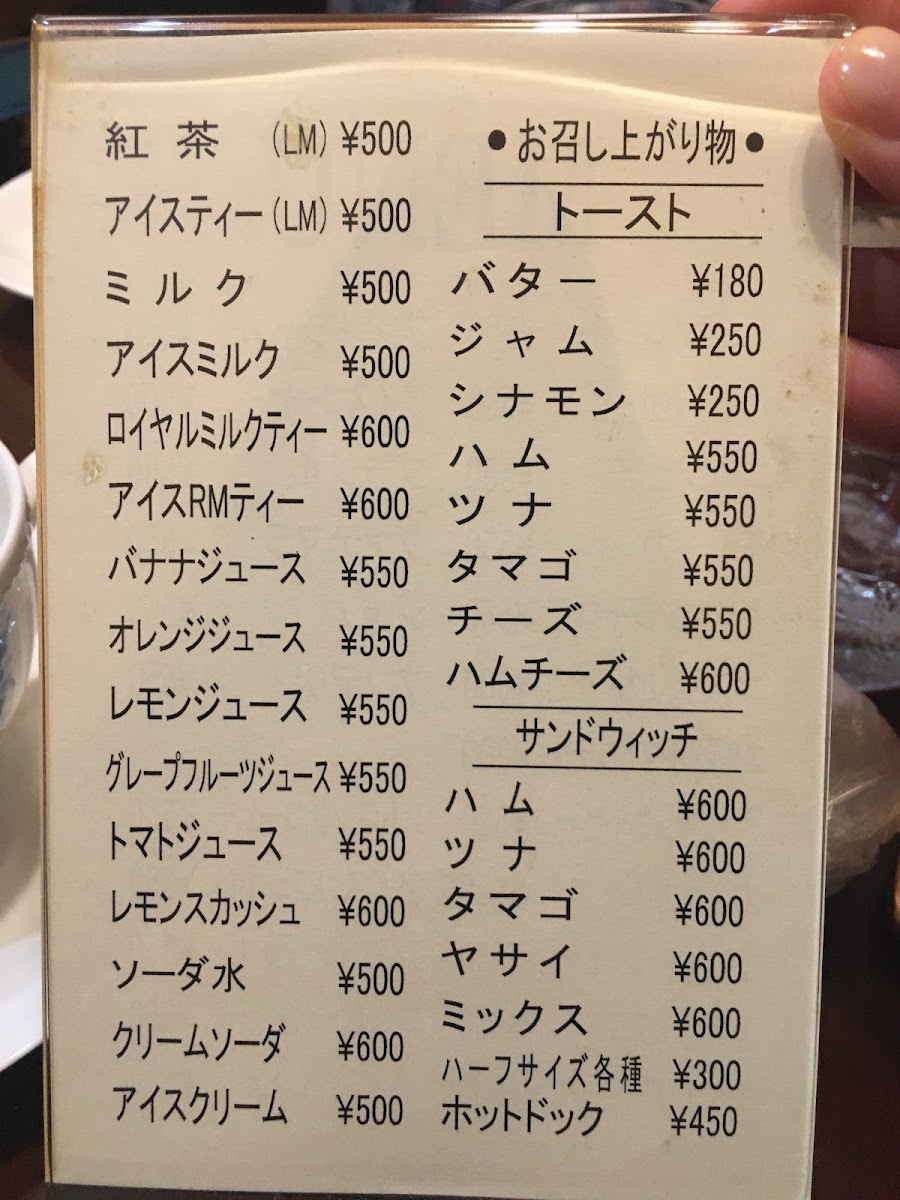 紅茶 (LM) ¥500
アイスティー (LM) ¥500
ミルク ¥500
アイスミルク ¥500
ロイヤルミルクティー ¥600
アイスRMティー ¥600
バナナジュース ¥550
オレンジジュース ¥550
レモンジュース ¥550
グレープフルーツジュース ¥550
トマトジュース ¥550
レモンスカッシュ ¥600
ソーダ水 ¥500
クリームソーダ ¥600
アイスクリーム ¥500
●お召し上がり物●
トースト
バター ¥180
ジャム ¥250
シナモン ¥250
ハム ¥550
ツナ ¥550
タマゴ ¥550
チーズ ¥550
ハムチーズ ¥600
サンドウィッチ
ハム ¥600
ツナ ¥600
タマゴ ¥600
ヤサイ ¥600
ミックス ¥600
ハーフサイズ各種 ¥300
ホットドック ¥450